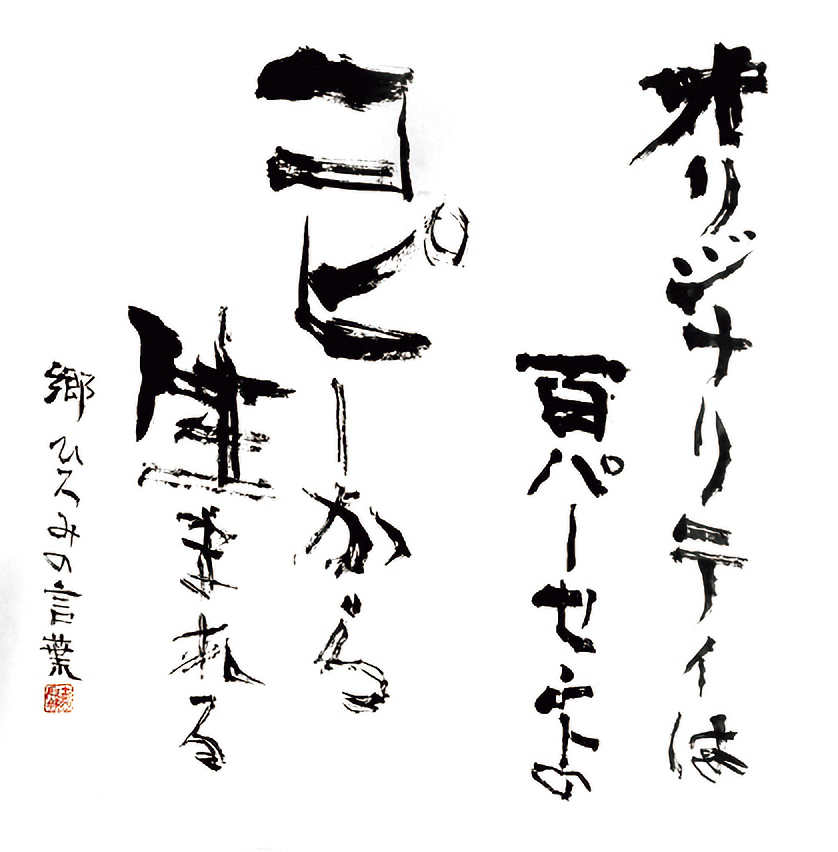 オリジナリティは
百パーセントの
コピーから
生まれる
郷ひろみの言葉